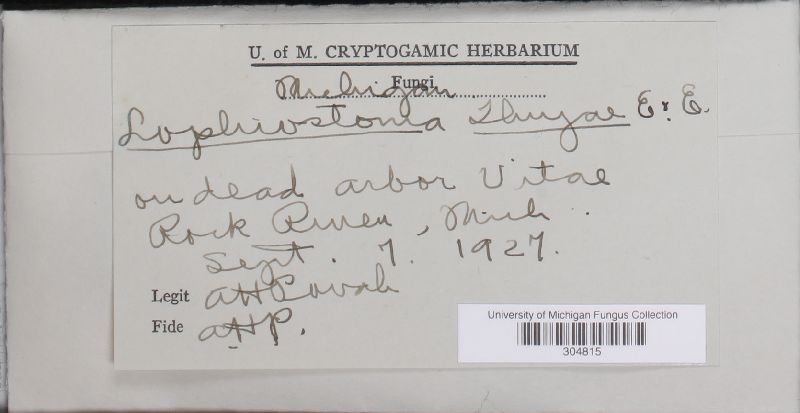 U. of M. CRYPTOGAMIC HERBARIUM
Fungi
Michigan
Lophiostoma Thuyae E & E.
on dead arbor Vitae
Rock River, Mich.
Sept. 7. 1927.
Legit AHPovah
Fide AHP.
University of Michigan Fungus Collection
304815